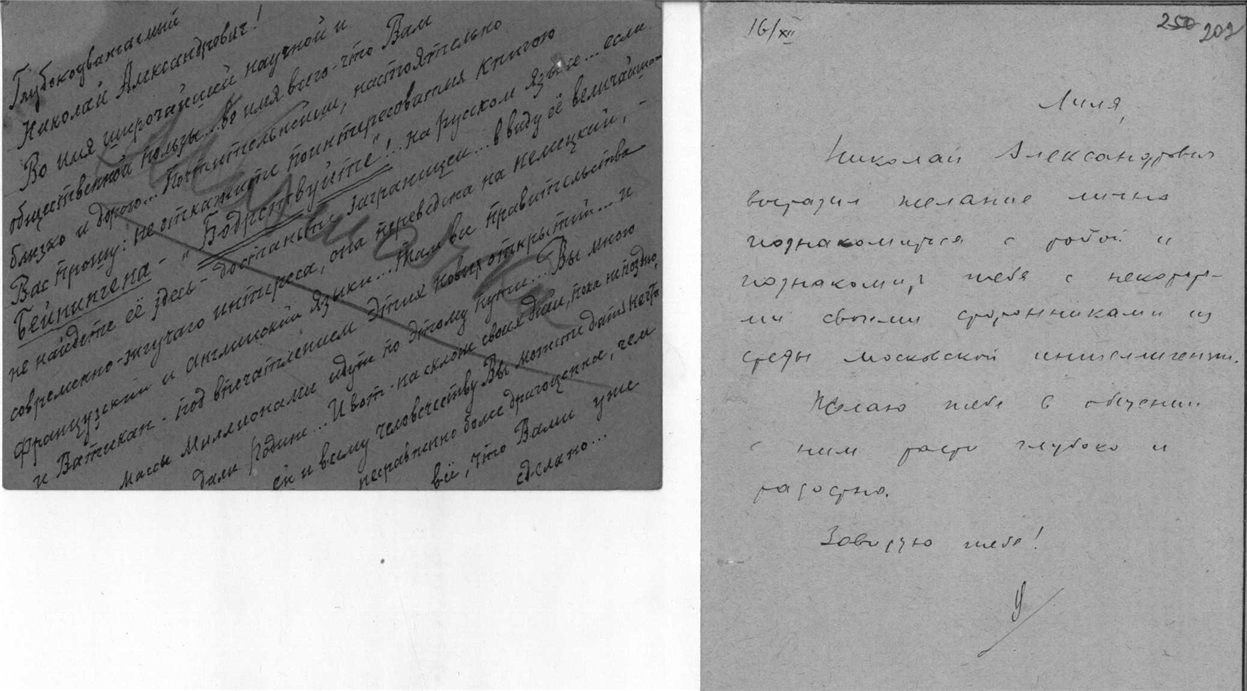 Глубокоуважаемый
Николай Александрович!
Во имя широчайшей научной и
общественной пользы... во имя всего - что Вам
близко и дорого... Почтительнейше, настоятельно
Вас прошу: не откажите поинтересоваться книгою
Бейнингена - "Бодрствуйте"!.. на русском языке... если
не найдете её здесь - достаньте заграницей... в виду её величайше-
современно-жгучаго интереса, она переведена на немецкий, -
французский и английский языки... Там все правительства
и Ватикан - под впечатлением этих новых открытий... и
массы миллионами идут по этому пути... Вы много
дали Родине... И вот - на склоне своих дней, пока не поздно,
ей и всему человечеству Вы можете дать нечто
несравненно более драгоценное, чем
всё, что Вами уже
сделано...
16/XII
250 202
Лиля,
Николай Александрович
выразил желание лично
познакомиться с тобой и
познакомить тебя с некоторы-
ми своими сторонниками из
среды московской интеллигенции.
Желаю тебе в общении
с ним расти глубоко и
радостно.
Завидую тебе!